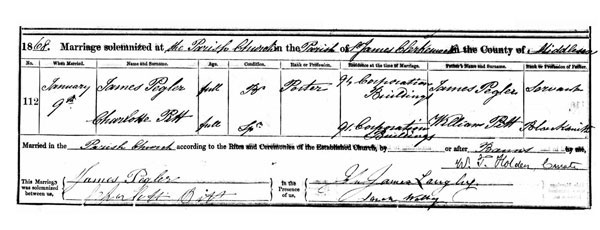 1868. Marriage solemnized at the Parish Church in the Parish of St James Clerkenwell in the County of Middlesex
No. When Married. Name and Surname. Age. Condition. Rank or Profession. Residence at the time of Marriage. Father's Name and Surname. Rank or Profession of Father.
112 January 9th James Pegler full Br Porter 94 Corporation Buildings James Pegler Servant
Charlotte Pitt full Spr 91 Corporation Buildings William Pitt Blacksmith
Married in the Parish Church according to the Rites and Ceremonies of the Established Church, by or after Banns by me,
W. T. Holden Curate
This Marriage was solemnized between us, James Pegler
Charlotte Pitt
In the Presence of us, James Langley